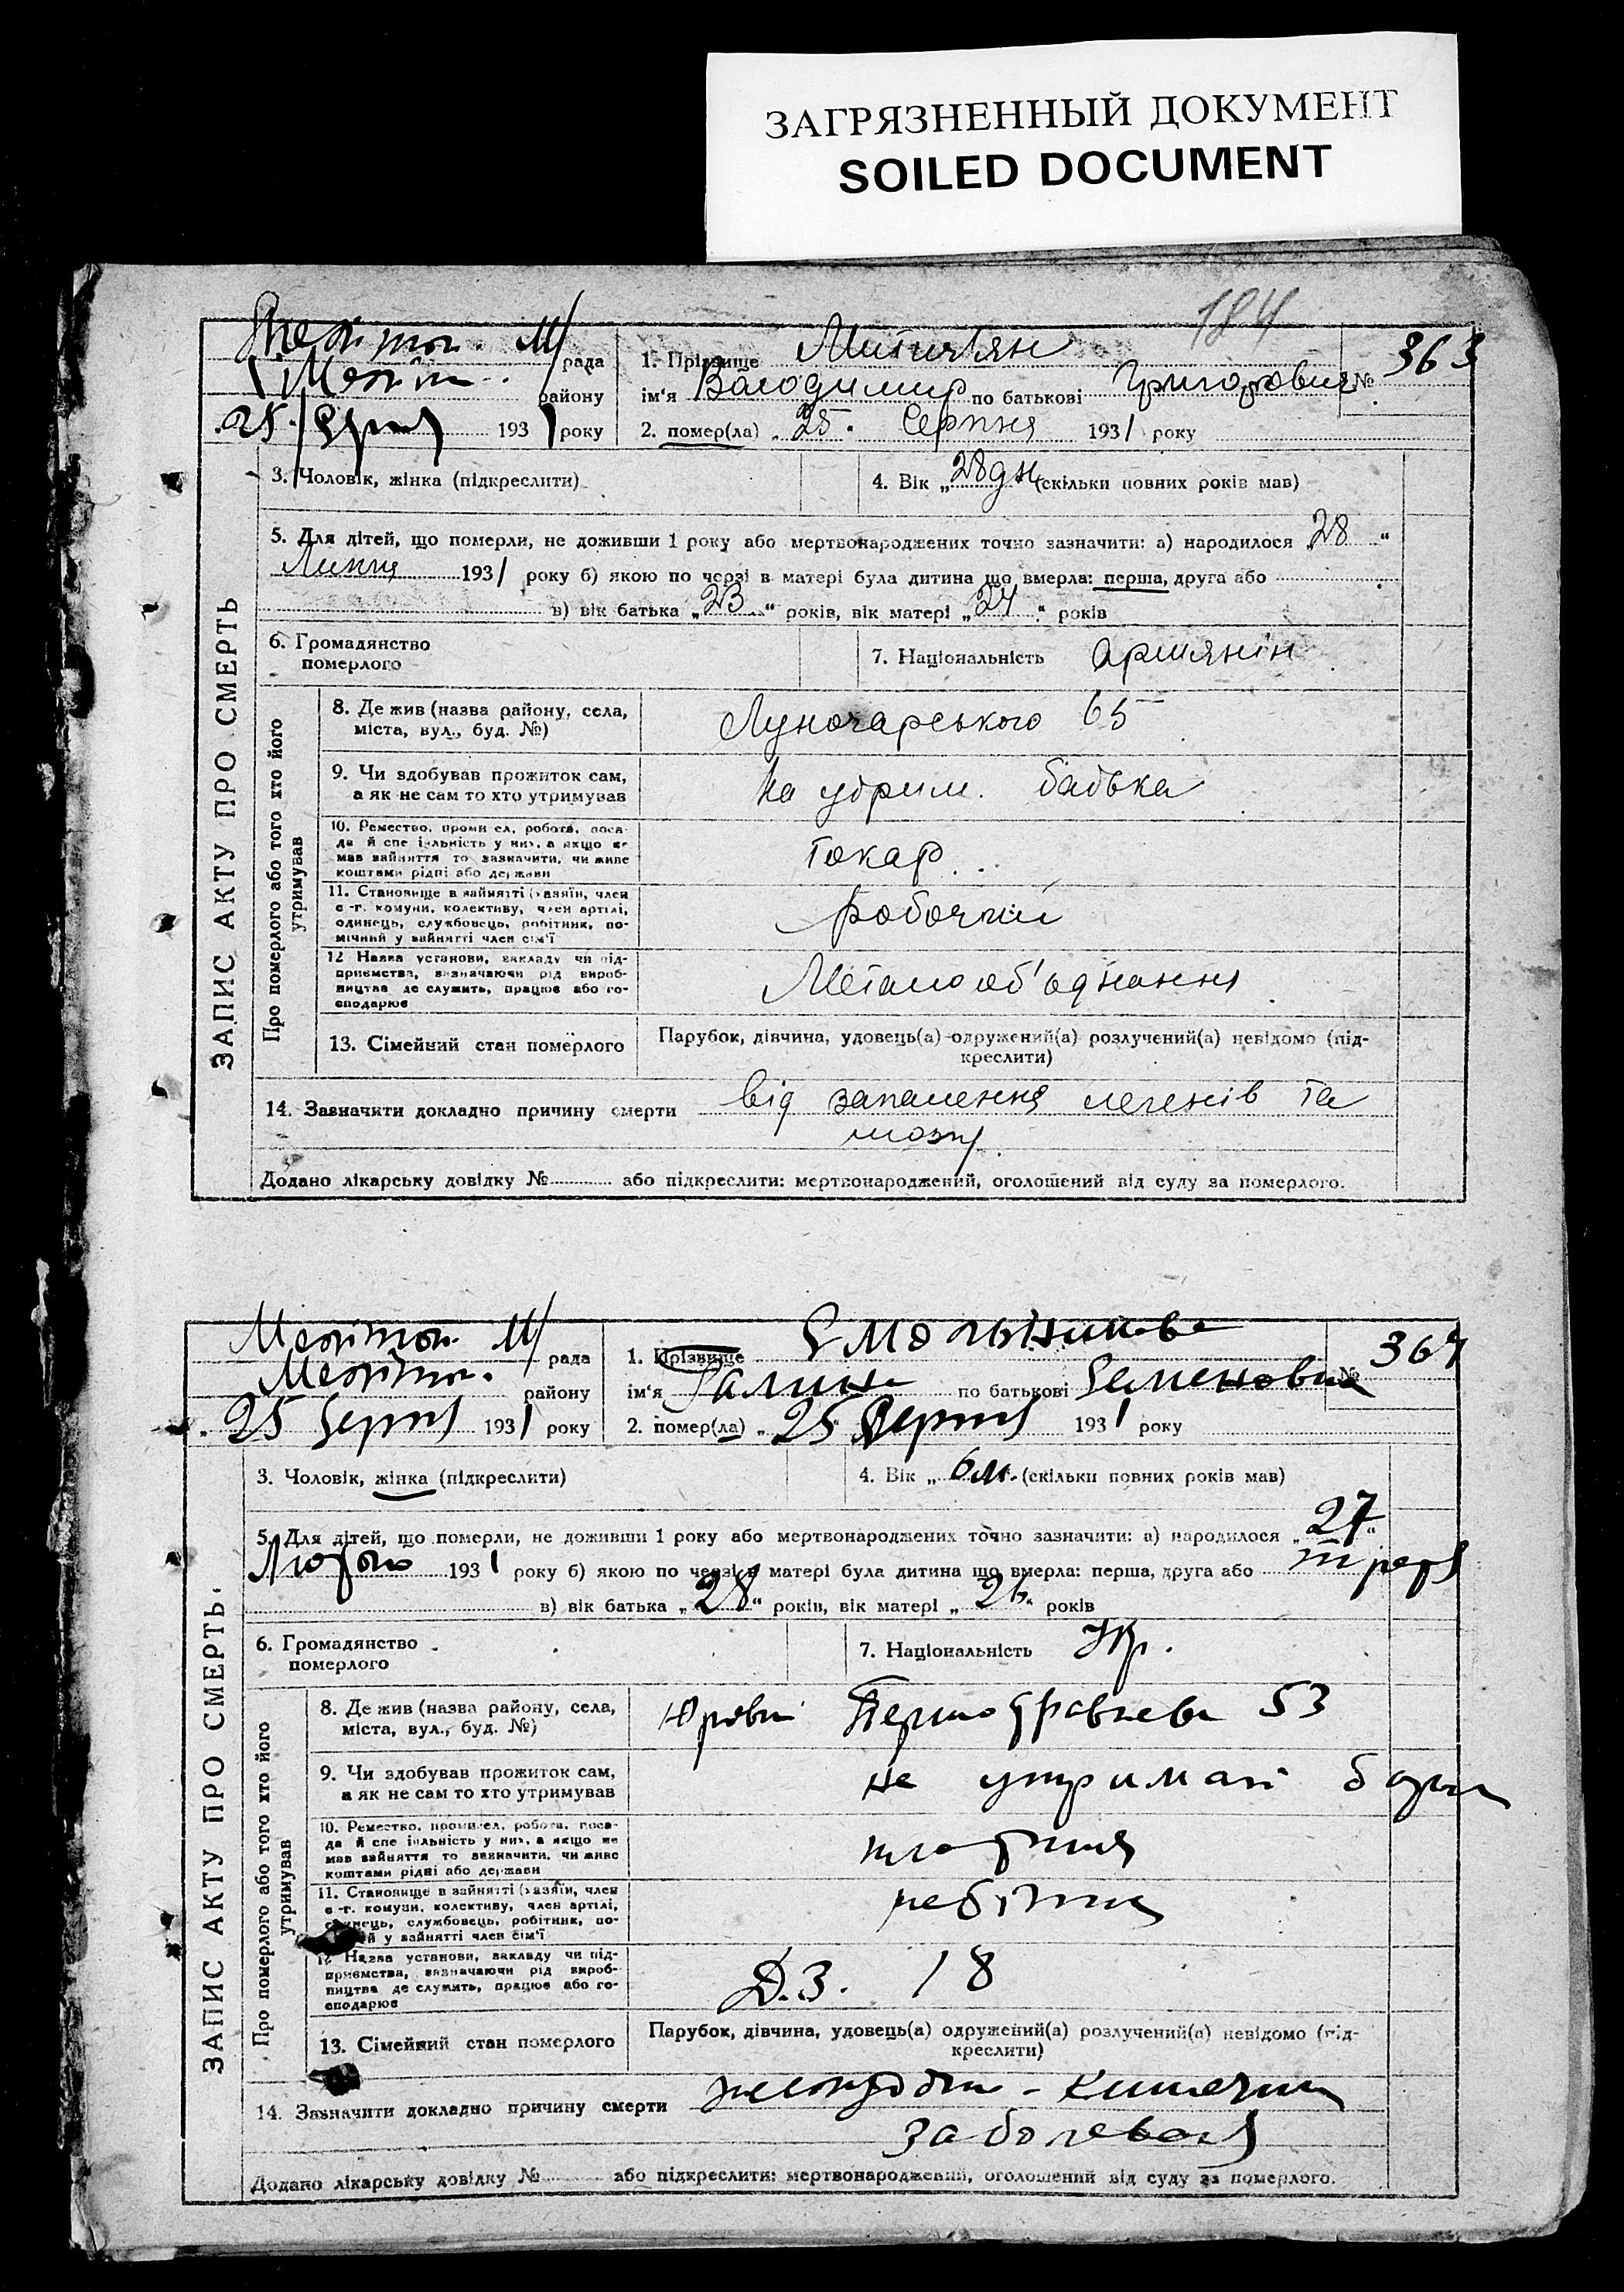 ЗАГРЯЗНЕННЫЙ ДОКУМЕНТ
SOILED DOCUMENT
184
ЗАПИС АКТУ ПРО СМЕРТЬ
М/ рада
району
25 1931 року
1. Прізвище
ім‘я Володимир по батькові Григорович
№ 363
2. помер(ла) „ 25. Серпня 1931 року
3. Чоловік, жінка (підкреслити)
4. Вік „ 28 дн (скільки повних років мав)
5. Для дітей, що померли, не доживши 1 року або мертвонароджених точно зазначити: а) народилося „ 28 “
Липня 1931 року б) якою по черзі в матері була дитина що вмерла: перша, друга або
в) вік батька „ 23 “ років, вік матері „ 24 “ років
6. Громадянство
померлого
7. Національність Армянін
Про померлого або того хто його
утримував
8. Де жив (назва району, села,
міста, вул., буд. №)
Луночарського 65
9. Чи здобував прожиток сам,
а як не сам то хто утримував
На утрим. батька
10. Ремество, промисел, робота, поса-
да й спеціяльність у них, а якщо не
мав зайняття то зазначити, чи живе
коштами рідні або держави
токар
11. Становище в зайнятті (хазяїн, член
с.-г. комуни, колективу, член артілі,
одинець, службовець, робітник, по-
мічний у зайнятті член сім‘ї
робочий
12 Назва установи, закладу чи під-
приємства, визначаючи рід вироб-
ництва де служить, працює або го-
сподарює
Металооб'єднання
13. Сімейний стан померлого
Парубок, дівчина, удовець(а) одружений(а) розлучений(а) невідомо (під-
креслити)
14. Зазначити докладно причину смерти від запалення легенів та
мозку
Додано лікарську довідку № або підкреслити: мертвонароджений, оголошений від суду за померлого.
ЗАПИС АКТУ ПРО СМЕРТЬ.
М/ рада
району
25 Серпня 1931 року
1. Прізвище
ім‘я Галина по батькові Семеновна
№ 364
2. помер(ла) „ 25 Серпня 1931 року
3. Чоловік, жінка (підкреслити)
4. Вік „ 6 м. (скільки повних років мав)
5. Для дітей, що померли, не доживши 1 року або мертвонароджених точно зазначити: а) народилося „ 27 “
Лютого 1931 року б) якою по черзі в матері була дитина що вмерла: перша, друга або
в) вік батька „ 28 “ років, вік матері „ “ років
6. Громадянство
померлого
7. Національність Укр.
Про померлого або того хто його
утримував
8. Де жив (назва району, села,
міста, вул., буд. №)
53
9. Чи здобував прожиток сам,
а як не сам то хто утримував
на
10. Ремество, промисел, робота, поса-
да й спеціяльність у них, а якщо не
мав зайняття то зазначити, чи живе
коштами рідні або держави
11. Становище в зайнятті (хазяїн, член
с.-г. комуни, колективу, член артілі,
одинець, службовець, робітник, по-
й у зайнятті член сім‘ї
12. Назва установи, закладу чи під-
приємства, визначаючи рід вироб-
ництва де служить, працює або го-
сподарює
Д.З. 18
13. Сімейний стан померлого
Парубок, дівчина, удовець(а) одружений(а) розлучений(а) невідомо (під-
креслити)
14. Зазначити докладно причину смерти
Додано лікарську довідку № або підкреслити: мертвонароджений, оголошений від суду за померлого.